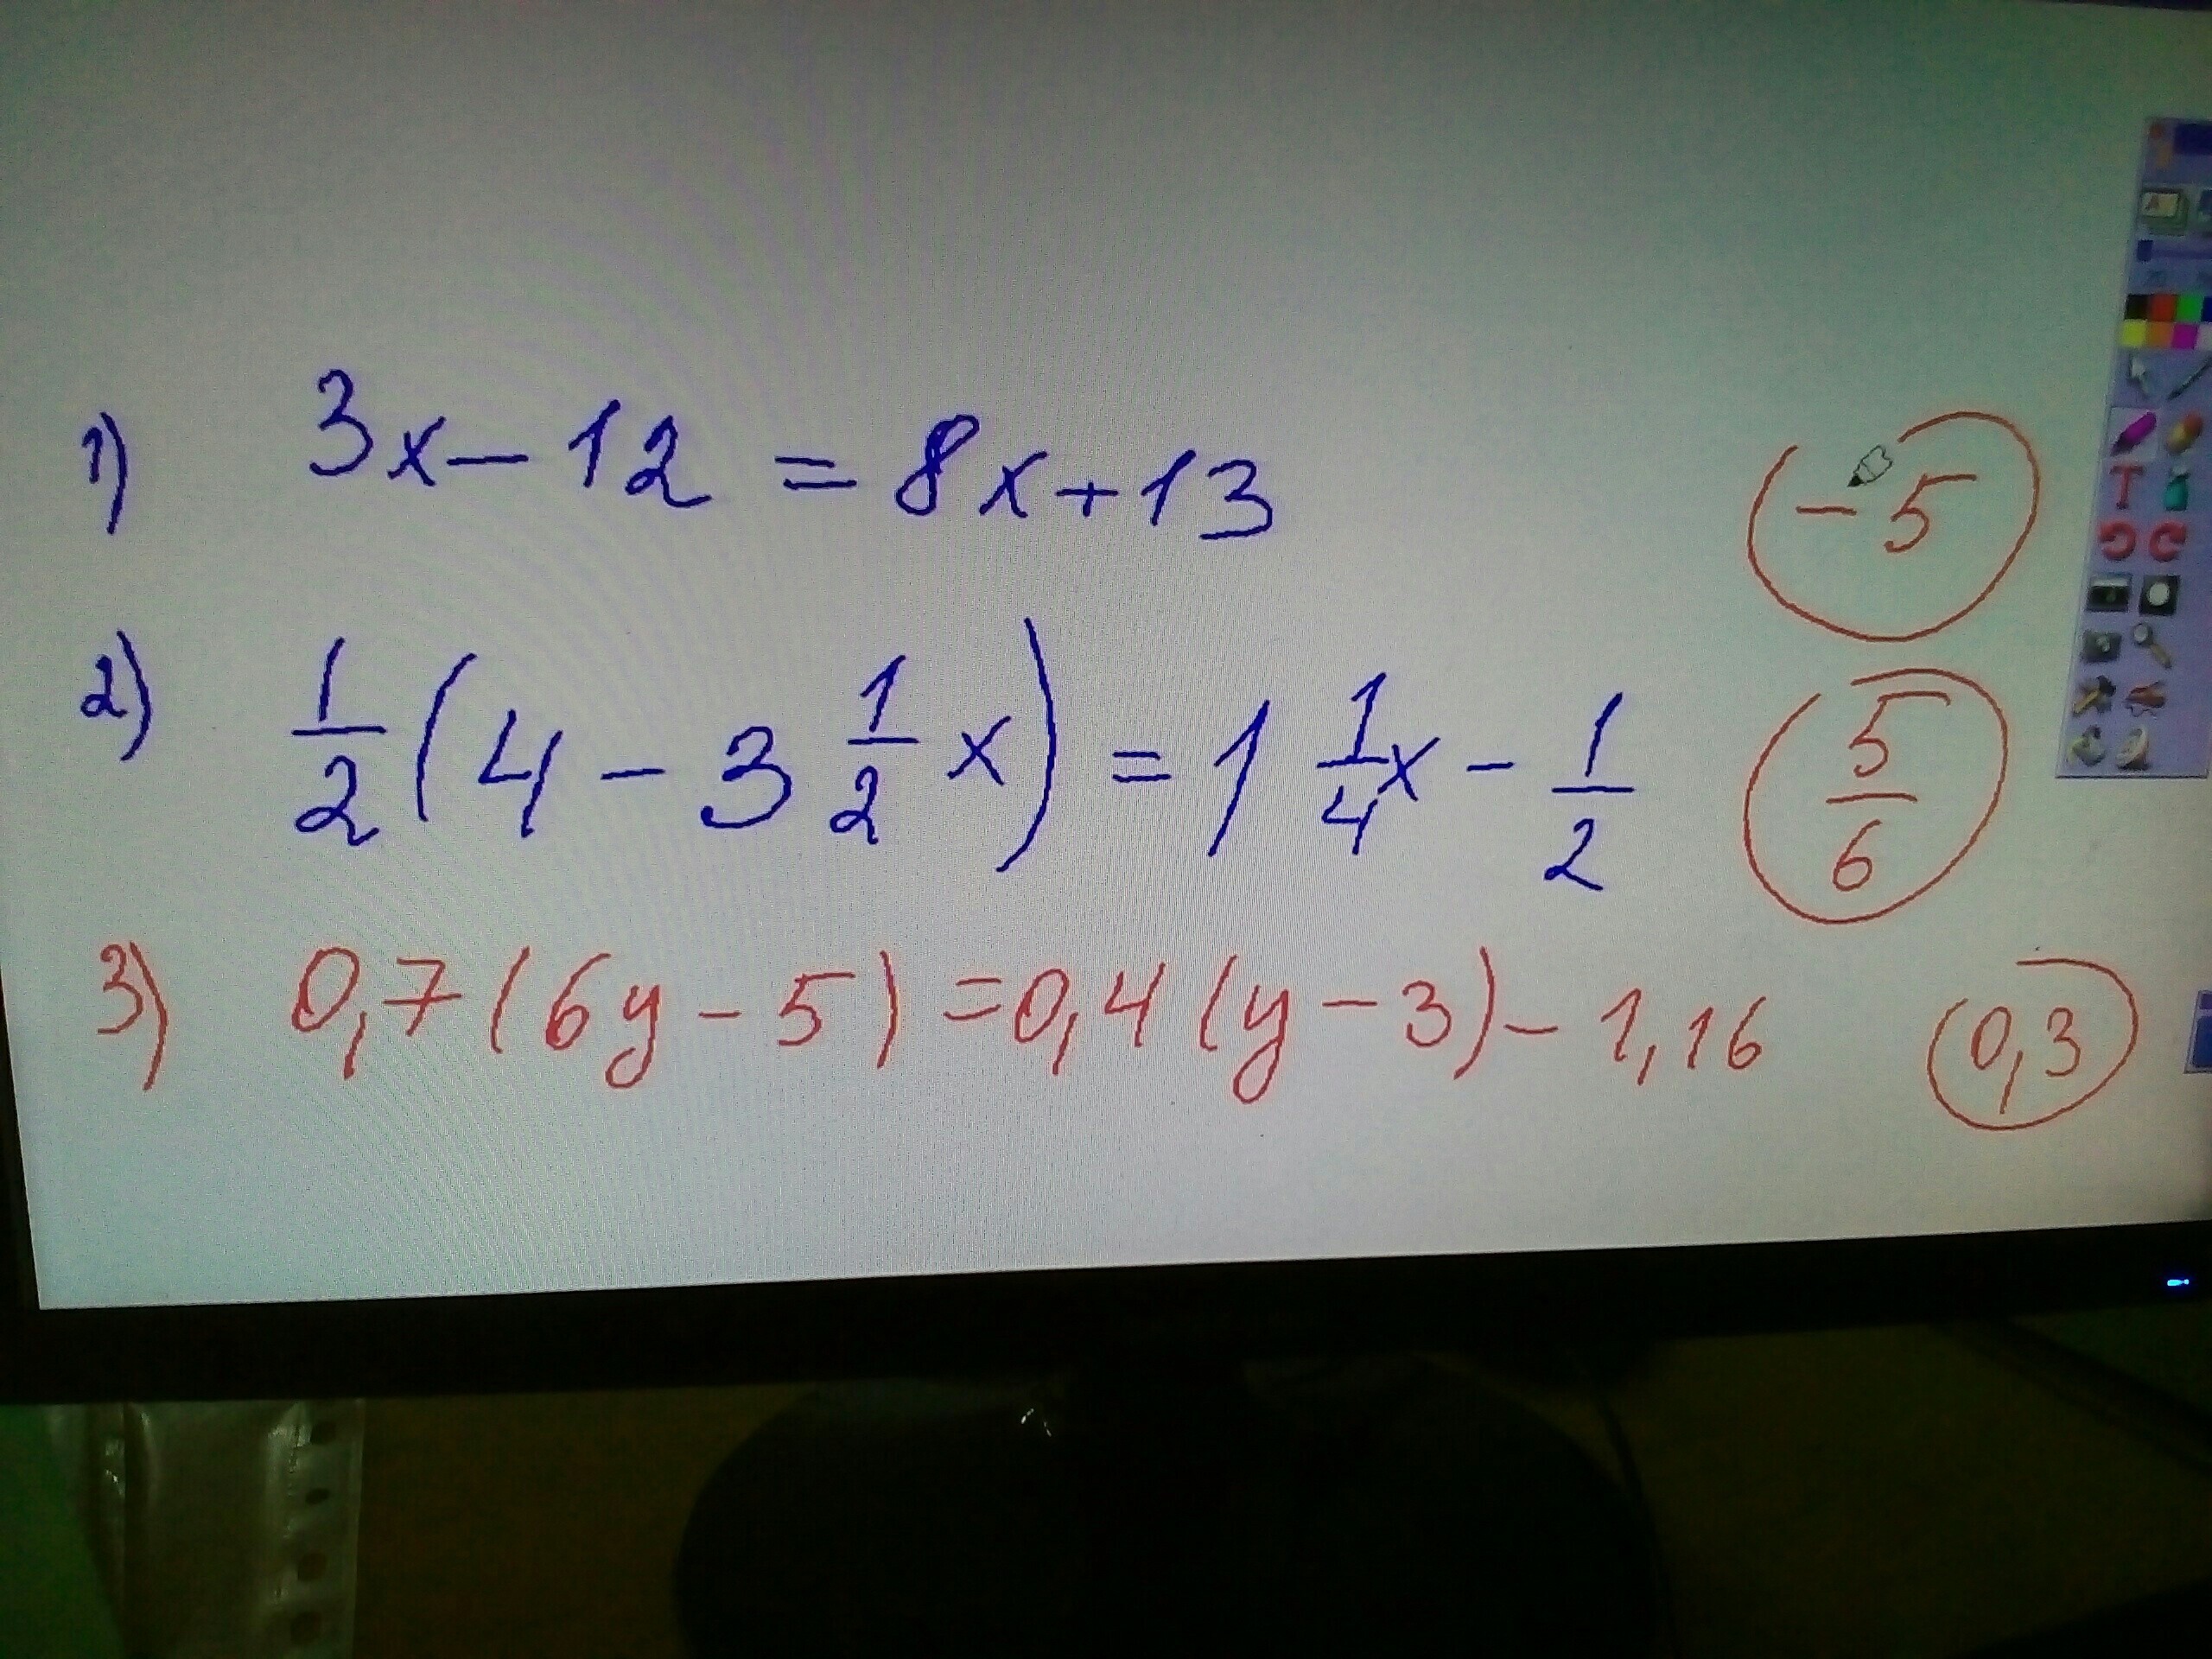 1) 3x - 12 = 8x + 13 (-5)
2) 1/2 (4 - 3 1/2 x) = 1 1/4 x - 1/2 (5/6)
3) 0,7 (6y - 5) = 0,4 (y - 3) - 1,16 (0,3)
T